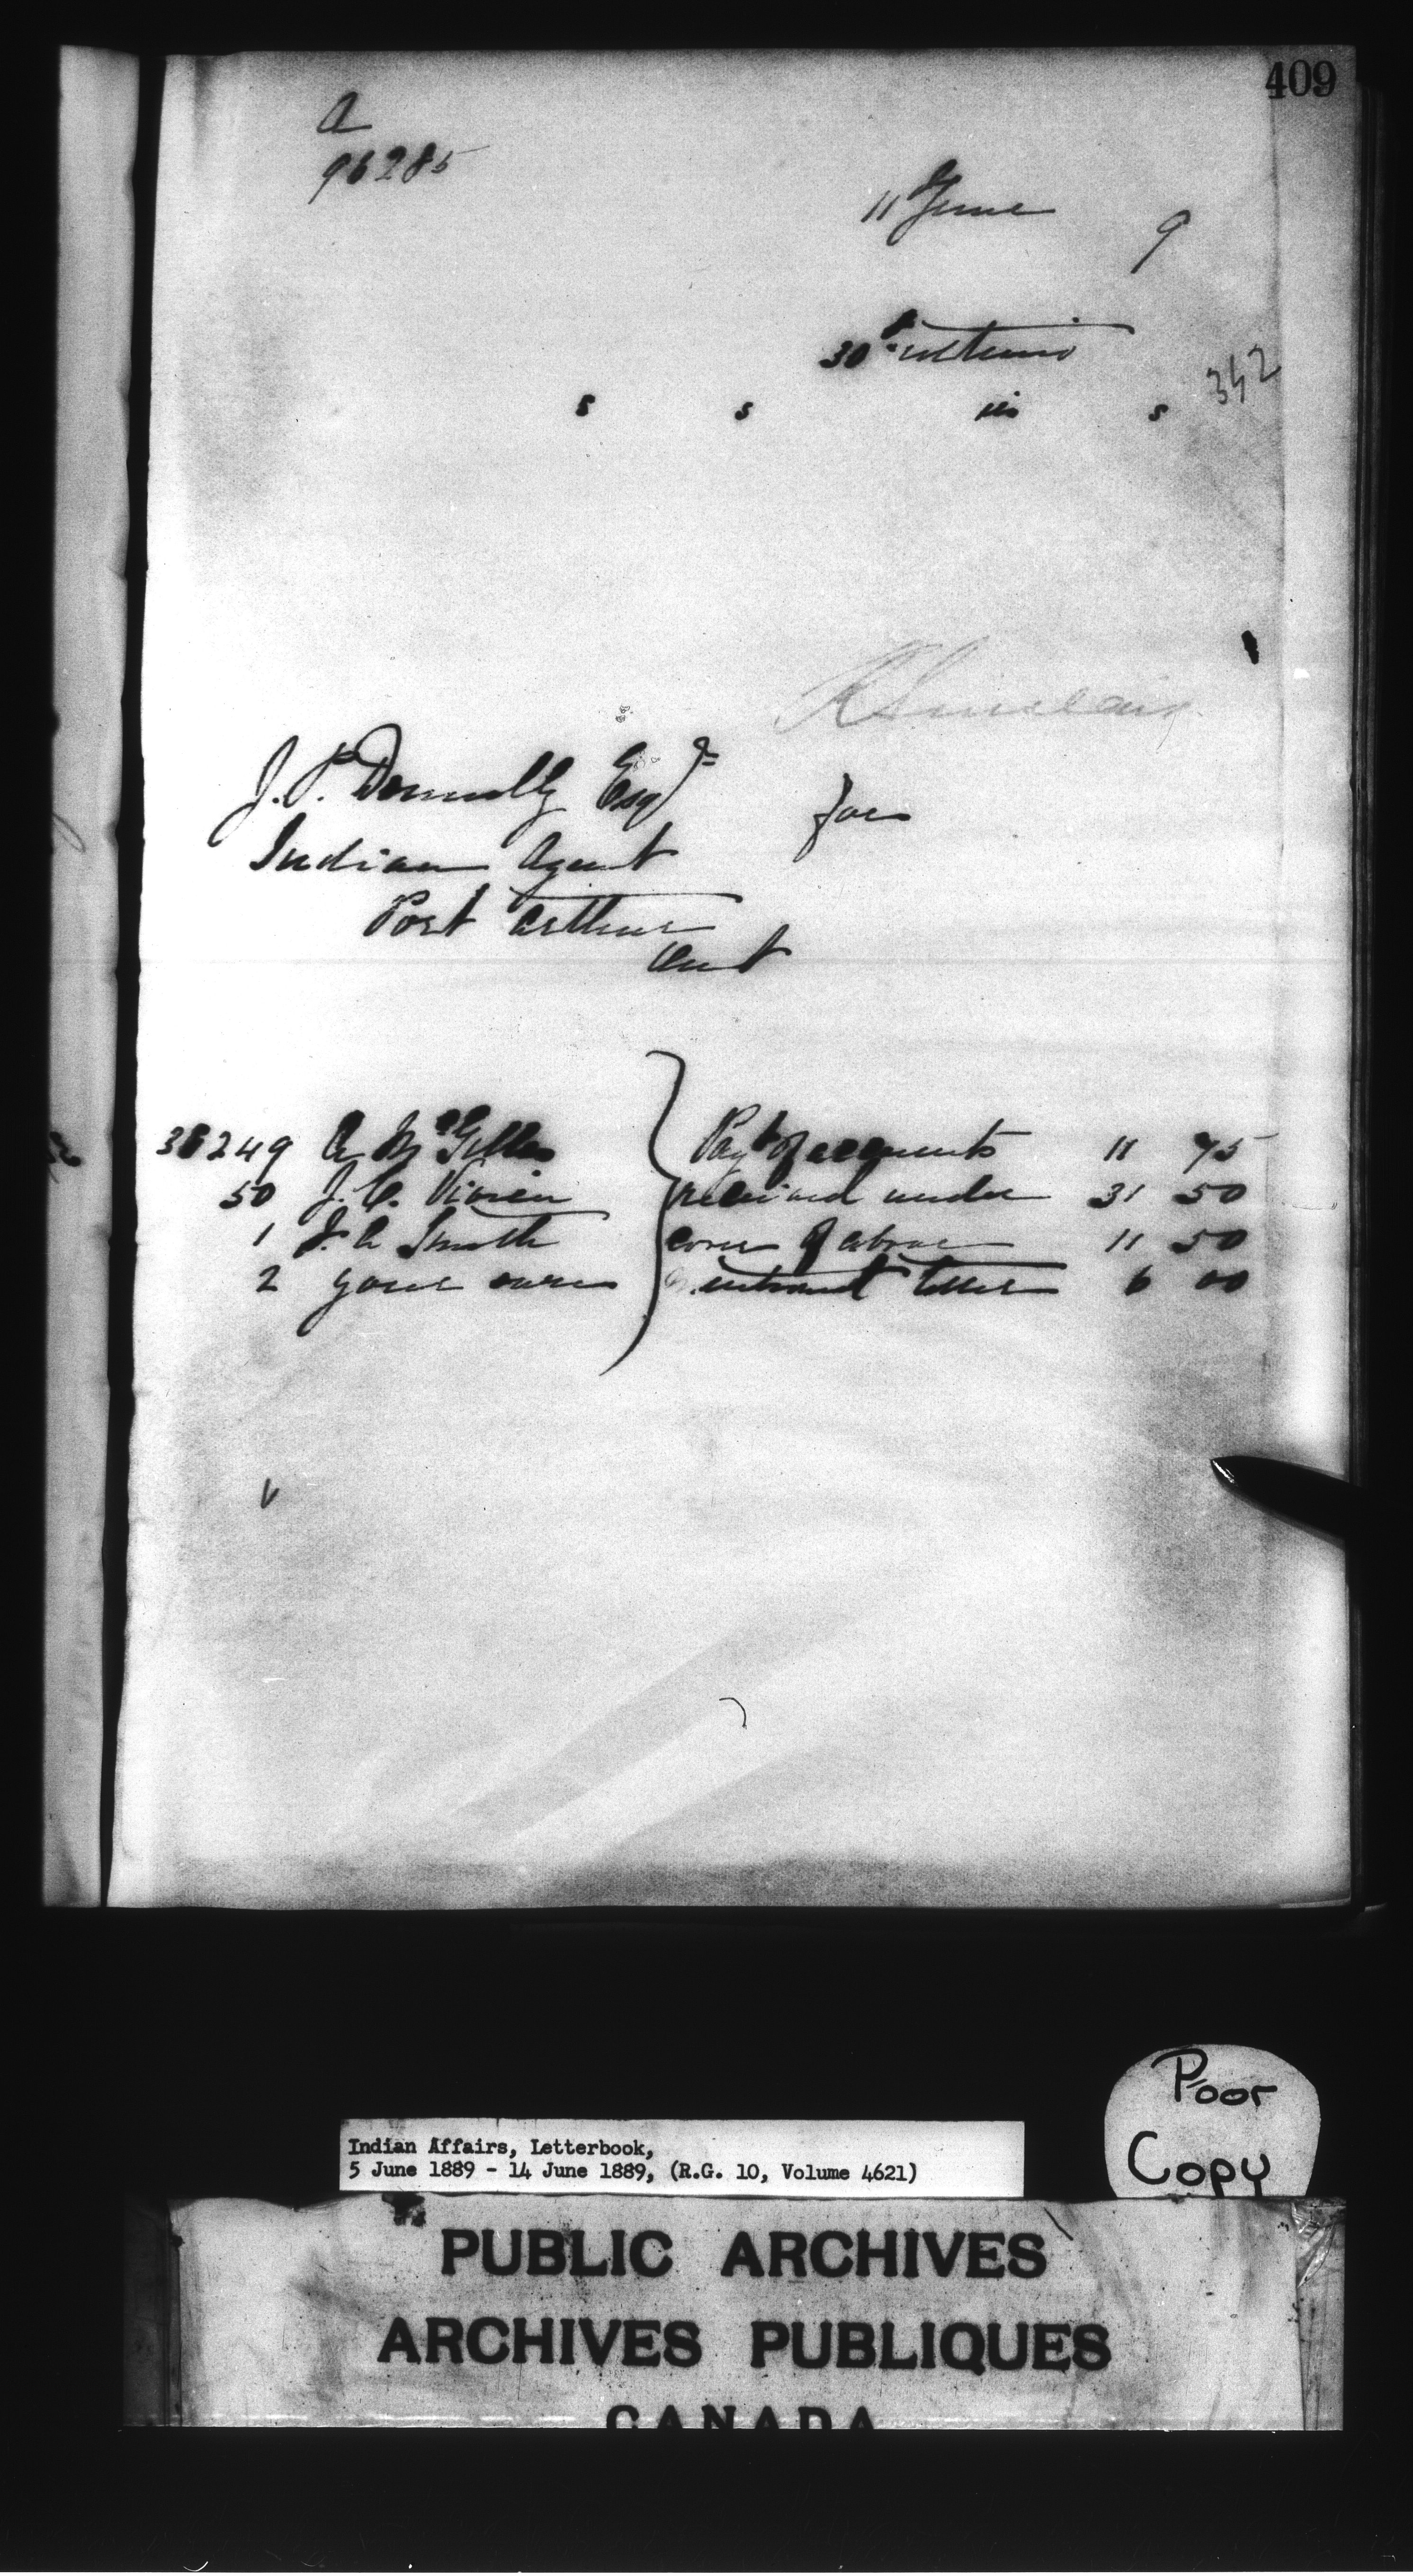 409
a
96285
11 June 9
30th ultimo
s s is s 342
R Sinclair
J. P. Donnelly Esqre
for
Indian Agent
Port Arthur
Ont
38249 A McGillis Payt of accounts 11 75
50 J. C. Vivien received under 31 50
1 J. A Smith cover of above 11 50
2 your own mentioned letter 6 00
Poor
Copy
Indian Affairs, Letterbook,
5 June 1889 - 14 June 1889, (R.G. 10, Volume 4621)
PUBLIC ARCHIVES
ARCHIVES PUBLIQUES
CANADA